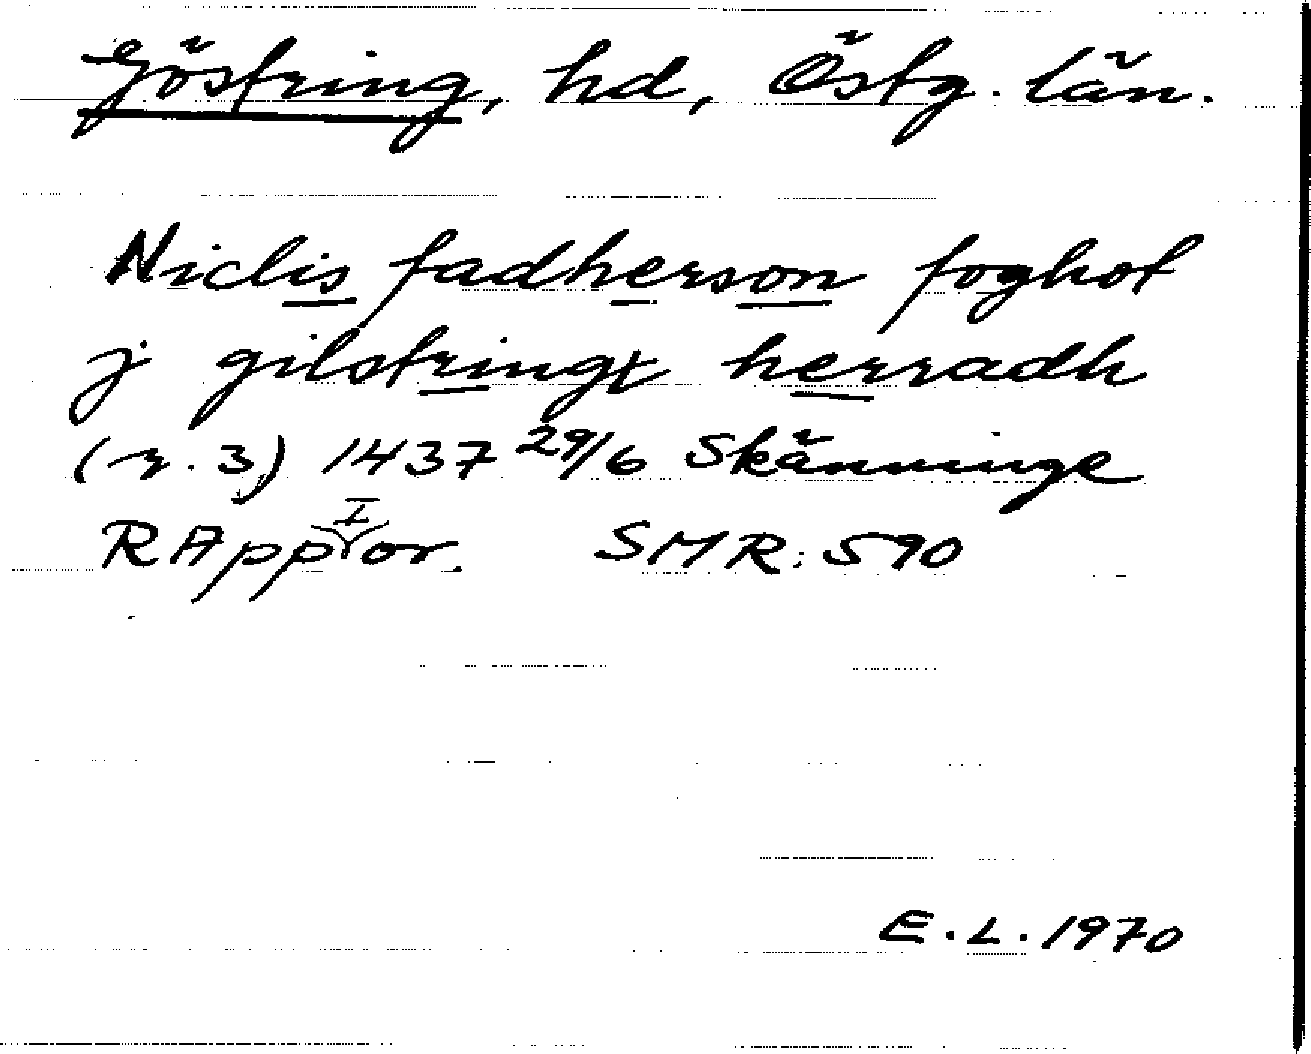 Göstring, hd, Östg. län.
Niclis fadherson foghot
j gilstringx herradh
(r. 3) 1437 29/6 Skänninge
RApp I or. SMR: 590
E.L. 1970